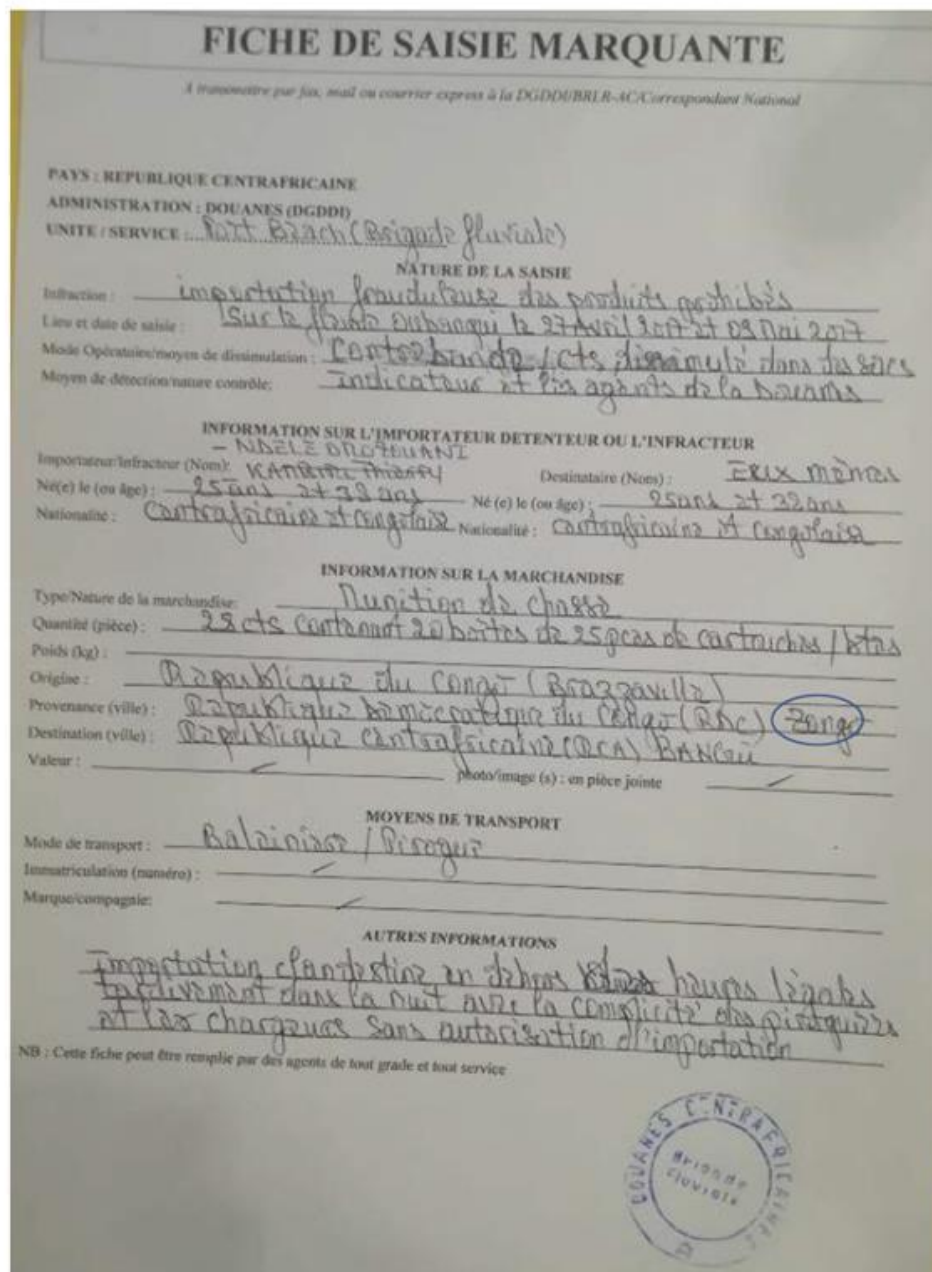 FICHE DE SAISIE MARQUANTE
A transmettre par fax, mail ou courrier express à la DGDDI/BRLR-AC/Correspondant National
PAYS : REPUBLIQUE CENTRAFRICAINE
ADMINISTRATION : DOUANES (DGDDI)
UNITE / SERVICE : Port Beach (Brigade fluviale)
NATURE DE LA SAISIE
Infraction : importation frauduleuse des produits prohibés
Lieu et date de saisie : Sur le fleuve Oubangui le 27 Avril 2017 et 09 Mai 2017
Mode Opératoire/moyen de dissimulation : Contrebande / cts dissimulé dans des sacs
Moyen de détection/nature contrôle: indicateur et les agents de la Douanes
INFORMATION SUR L'IMPORTATEUR DETENTEUR OU L'INFRACTEUR
Importateur/Infracteur (Nom): Destinataire (Noms) : EEUX mêmes
Né(e) le (ou âge) : 25 ans et 38 ans Né (e) le (ou âge) : 25ans et 38ans
Nationalité : Centrafricaine et congolaise Nationalité : Centrafricaine et Congolaise
INFORMATION SUR LA MARCHANDISE
Type/Nature de la marchandise: Munition de chasse
Quantité (pièce) : 28 cts contenant 20 boîtes de 25 pces de cartouches /
Poids (kg) :
Origine : République du Congo (Brazzaville)
Provenance (ville) : République Démocratique du Congo (RDC) Zongo
Destination (ville) : République centrafricaine (RCA) BANGUI
Valeur : / photo/image (s) : en pièce jointe /
MOYENS DE TRANSPORT
Mode de transport : Baleinière / Pirogue
Immatriculation (numéro) : /
Marque/compagnie: /
AUTRES INFORMATIONS
Importation clandestine en dehors heures légales
tardivement dans la nuit avec la complicité des piroguiers
et les chargeurs sans autorisation d'importation
NB : Cette fiche peut être remplie par des agents de tout grade et tout service
DOUANES CENTRAFRICAINES
Brigade
fluviale